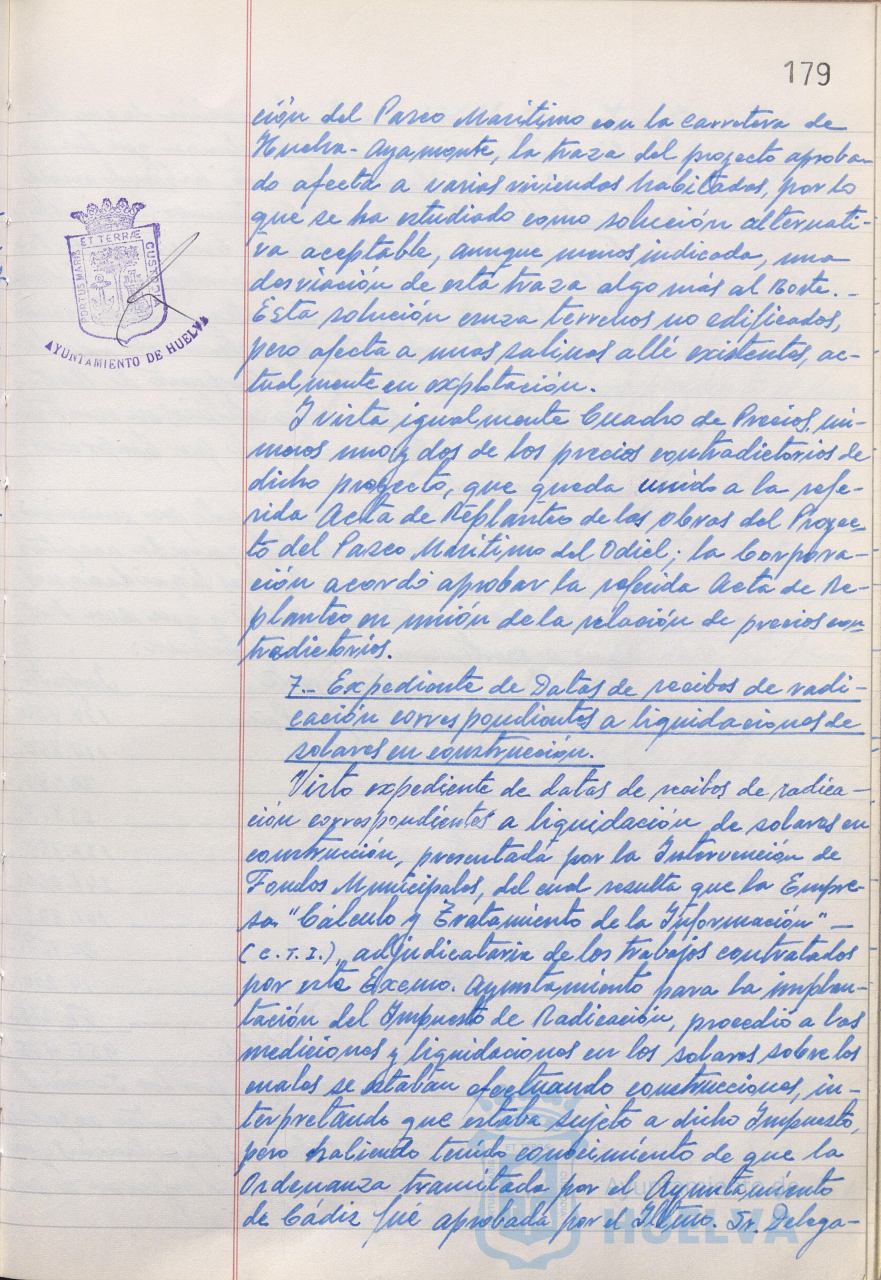 179
ción del Paseo Marítimo con la carretera de
Huelva-Ayamonte, la traza del proyecto aproba-
do afecta a varias viviendas habitadas, por lo
que se ha estudiado como solución alternati-
va aceptable, aunque menos indicada, una
desviación de esta traza algo más al Norte.-
Esta solución cruza terrenos no edificados,
pero afecta a unas salinas allí existentes, ac-
tualmente en explotación.
Y vista igualmente Cuadro de Precios, nú-
meros uno y dos de los precios contradictorios de
dicho proyecto, que queda unido a la refe-
rida Acta de Replanteo de las obras del Proyec-
to del Paseo Marítimo del Odiel; la Corpora-
ción acordó aprobar la referida Acta de Re-
planteo en unión de la relación de precios con-
tradictorios.
7.- Expediente de Datas de recibos de radi-
cación correspondientes a liquidaciones de
solares en construcción.
Visto expediente de datas de recibos de radica-
ción correspondientes a liquidación de solares en
construcción, presentada por la Intervención de
Fondos Municipales, del cual resulta que la Empre-
sa "Cálculo y Tratamiento de la Información" -
(C.T.I.), adjudicataria de los trabajos contratados
por este Excmo. Ayuntamiento para la implan-
tación del Impuesto de Radicación, procedió a las
mediciones y liquidaciones en los solares sobre los
cuales se estaban efectuando construcciones, in-
terpretando que estaba sujeto a dicho Impuesto,
pero habiendo tenido conocimiento de que la
Ordenanza tramitada por el Ayuntamiento
de Cádiz fué aprobada por el Iltmo. Sr. Delega-
PORTUS MARIS
ET TERRÆ
CUSTODIA
AYUNTAMIENTO DE HUELVA
Ayuntamiento de
HUELVA